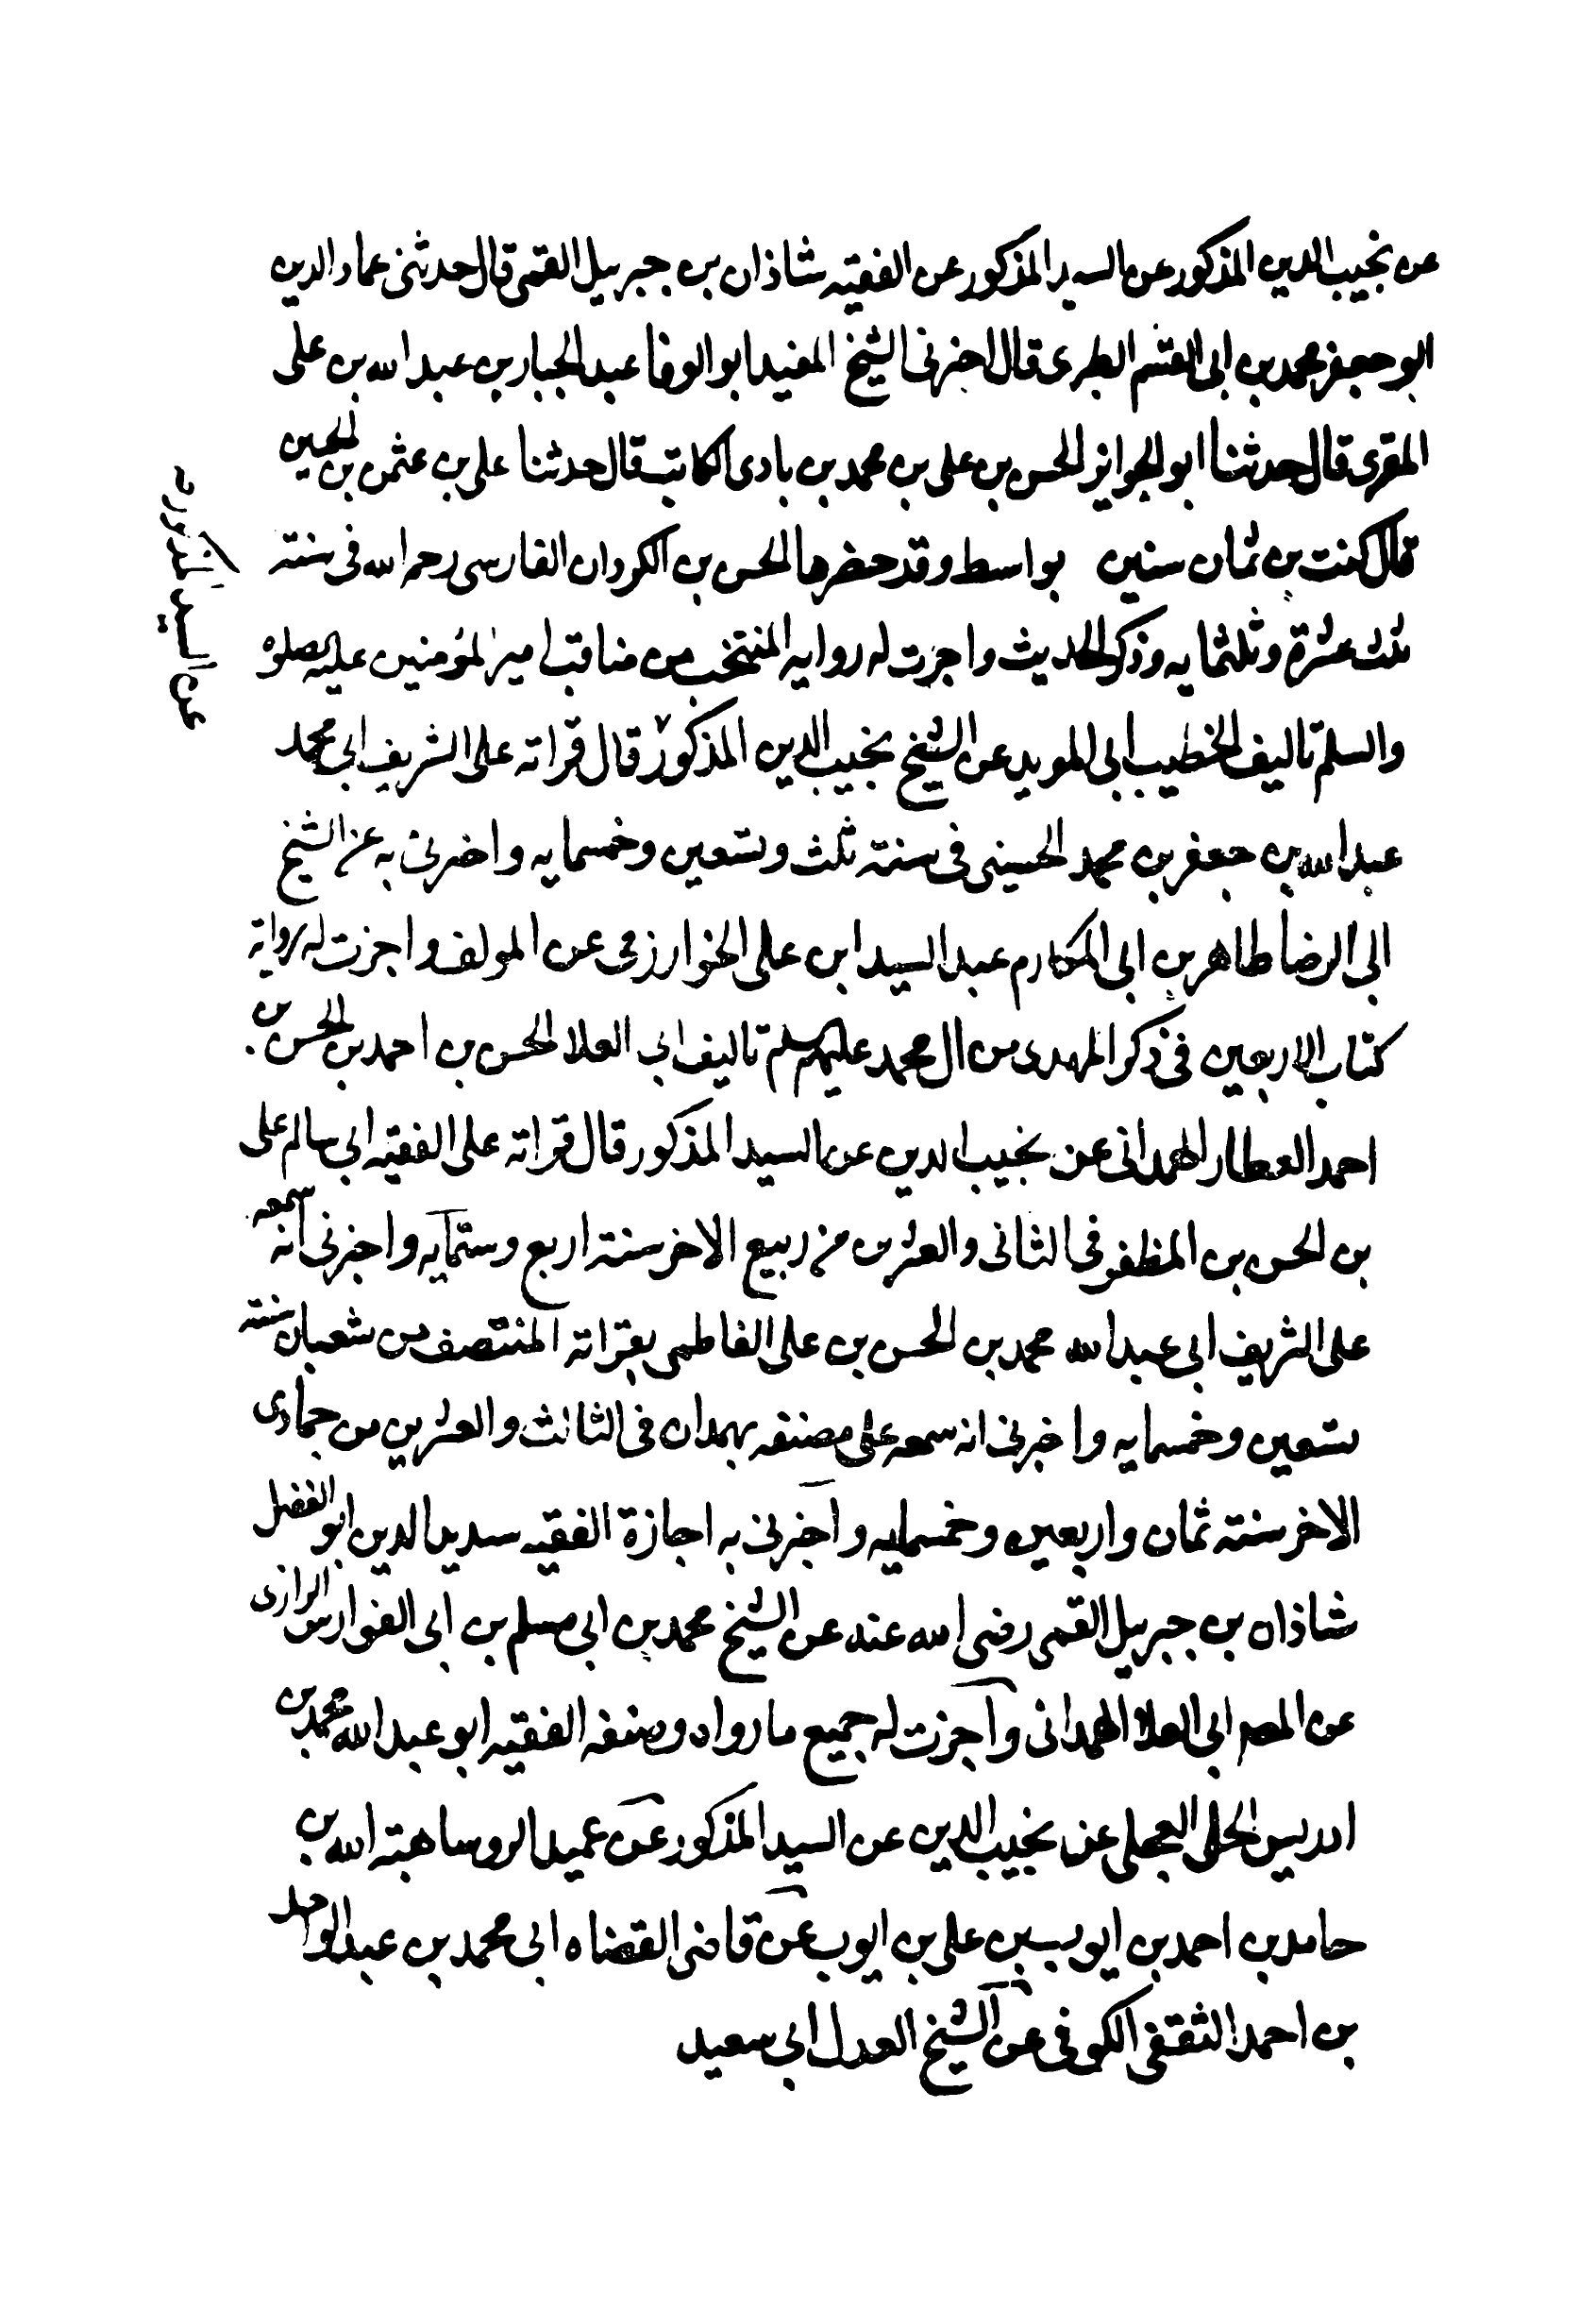 عن نجيب الدين المذكور عن السيد المذكور عن الفقيه شاذان بن جبرييل القمى قال حدثنى عماد الدين
ابو جعفر محمد بن ابى القسم الطبرى قال اخبرنى الشيخ المفيد ابو الوفا عبد الجبار بن عبد الله بن على
المقرى قال حدثنا ابو الجوايز الحسن بن على بن محمد بن بادى الكاتب قال حدثنا على بن عثمن بن الحسين
قال كنت بن ثمان سنين بواسط وقد حضرها الحسن بن الكردان الفارسى رحمه الله فى سنة
ثلث عشرة وثلثمايه وذكر الحديث واجزت له روايه المنتخب من مناقب امير المؤمنين عليه الصلوه
والسلم تاليف الخطيب ابى المويد عن الشيخ نجيب الدين المذكور قال قراته على الشريف ابى محمد
عبد الله بن جعفر بن محمد الحسينى فى سنة ثلث وتسعين وخمسمايه واخبرنى به عن الشيخ
ابى الرضا طاهر بن ابى المكارم عبد السيد ابن على الخوارزمى عن المولف واجزت له رواية
كتاب الاربعين فى ذكر المهدى من ال محمد عليهم السلم تاليف ابى العلا الحسن بن احمد بن الحسن بن
احمد العطار الهمدانى عن نجيب الدين عن السيد المذكور قال قراته على الفقيه ابى سالم على
بن الحسن بن المظفر فى الثانى والعشرين من ربيع الاخر سنة اربع وستمايه واخبرنى انه سمعه
على الشريف ابى عبد الله محمد بن الحسن بن على الفاطمى بقراته المنتصف من شعبان سنة
تسعين وخمسمايه واخبرنى انه سمعه على مصنفه بهمدان فى الثالث والعشرين من جمادى
الاخر سنة ثمان واربعين وخمسمايه واخبرنى به اجازة الفقيه سديد الدين ابو الفضل
شاذان بن جبرييل القمى رضى الله عنه عن الشيخ محمد بن ابى مسلم بن ابى الفوارس الرازى
عن المصم ابى العلا الهمدانى واجزت له جميع ما رواه وصنفه الفقيه ابو عبد الله محمد بن
ادريس الحلى العجلى عن نجيب الدين عن السيد المذكور عن عميد الروسا هبة الله بن
حامد بن احمد بن ايوب بن على بن ايوب عن قاضى القضاه ابى محمد بن عبد الواحد
بن احمد الثقفى الكوفى عن الشيخ العدل ابى سعيد
عن السيد المذكور